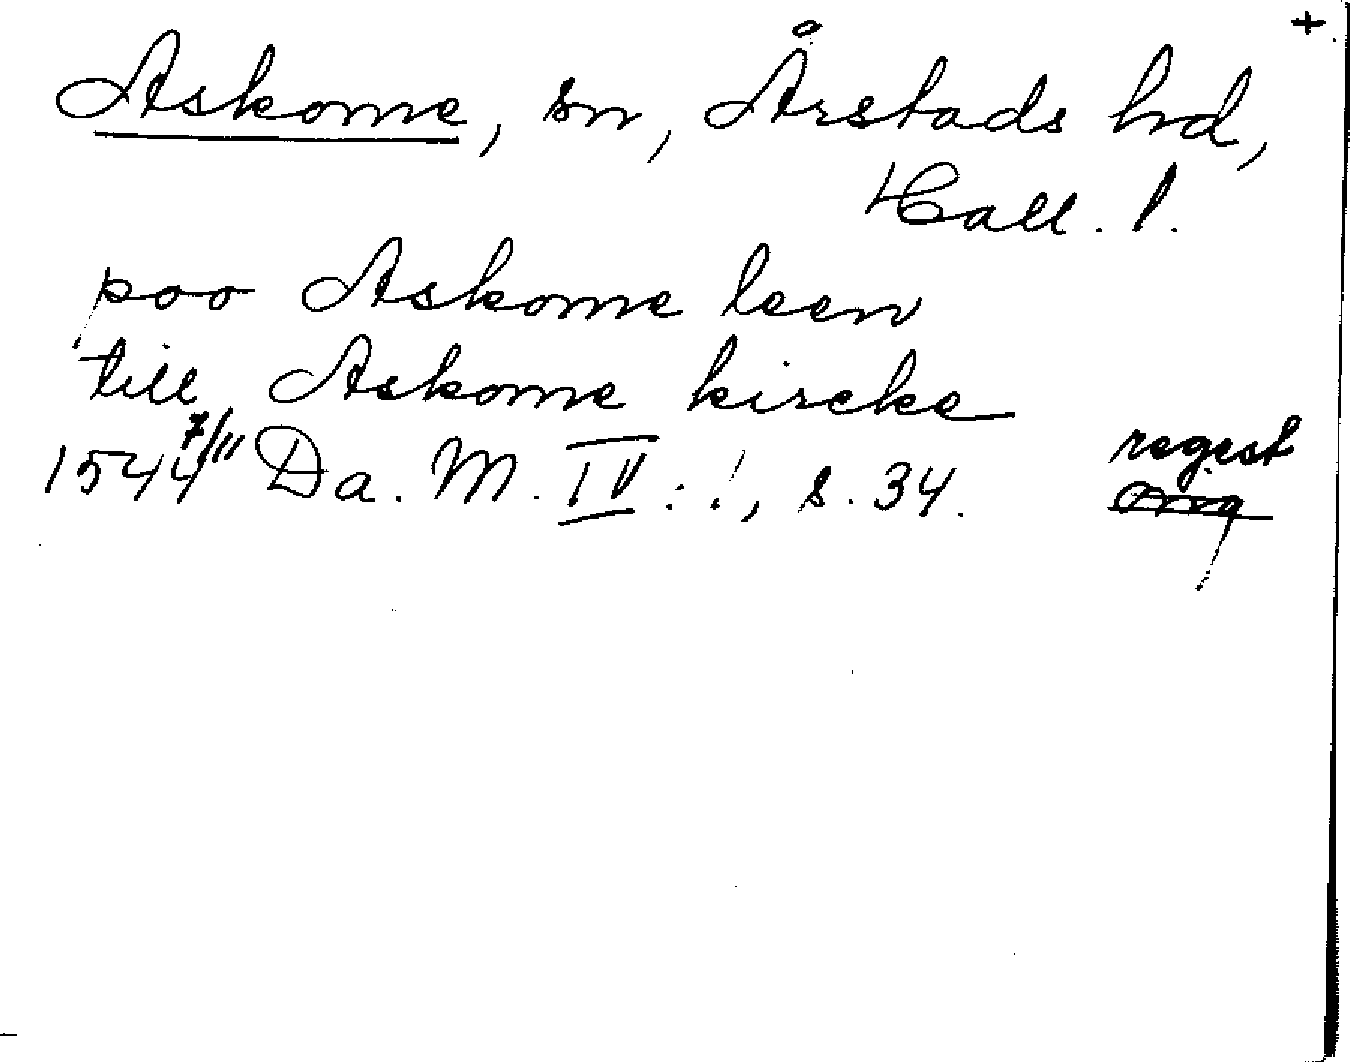 +
Askome, sn, Årstads hd,
Hall. l.
poo Askome leen
till Askome kircke
1544 7/11 Da. M. IV:1, s. 34. regest
orig